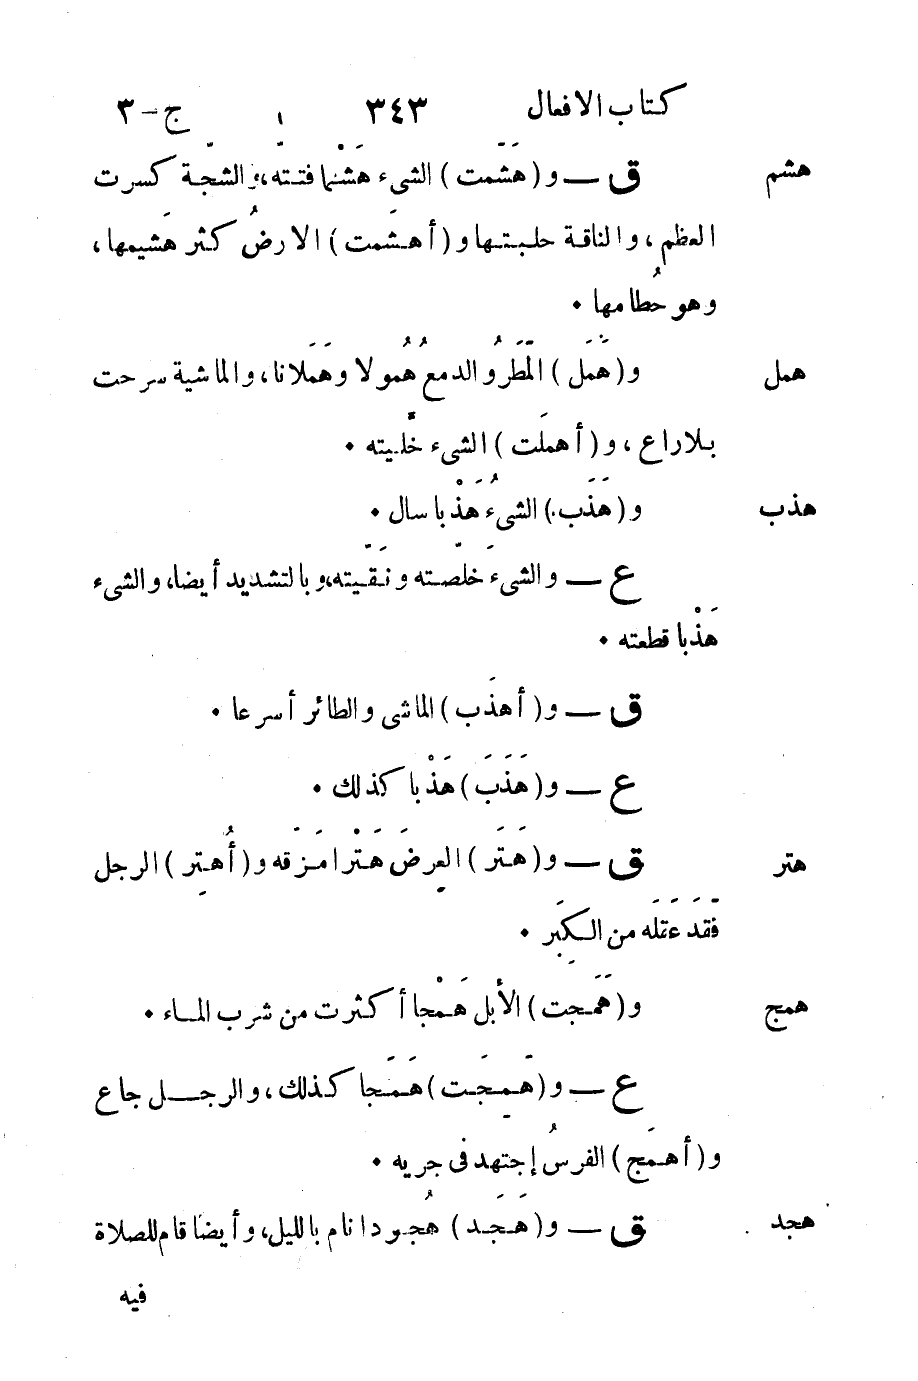 كتاب الافعال ٣٤٣ ج-٣
هشم ق — و (هَشَمت) الشىء هَشْما فتـتّه، والشجّة كسرت
العظم، والناقة حلبتـها و (أهـشَمت) الارضُ كثر هَشيمها،
وهو حُطامها •
همل و (هَمَل) المَطَرُ والدمعُ هُمُولا وهَمَلانا، والماشية سرحت
بلاراع، و (أهملَت) الشىء خلّيته •
هذب و (هَذَب) الشىءُ هَذْبا سال •
ع — والشىء خلّصته ونَقّيته، وبالتشديد أيضا، والشىء
هَذْبا قطعته •
ق — و (أهذَب) الماشى والطائر أسرعا •
ع — و (هَذَبَ) هَذْبا كذلك •
هتر ق — و (هَتَر) العِرضَ هَتْرا مَزَقه و (أُهتِر) الرجل
فَقَدَ عَقَلَه من الكِبَر •
همج و (هَمَجت) الأبل هَمْجا أكثرت من شرب المـاء •
ع — و (هَمِجَت) هَمَجا كذلك، والرجـل جاع
و (أهمَج) الفرسُ إجتهد فى جريه •
هجد ق — و (هَجَد) هُجودا نام بالليل، وأيضا قام للصلاة
فيه